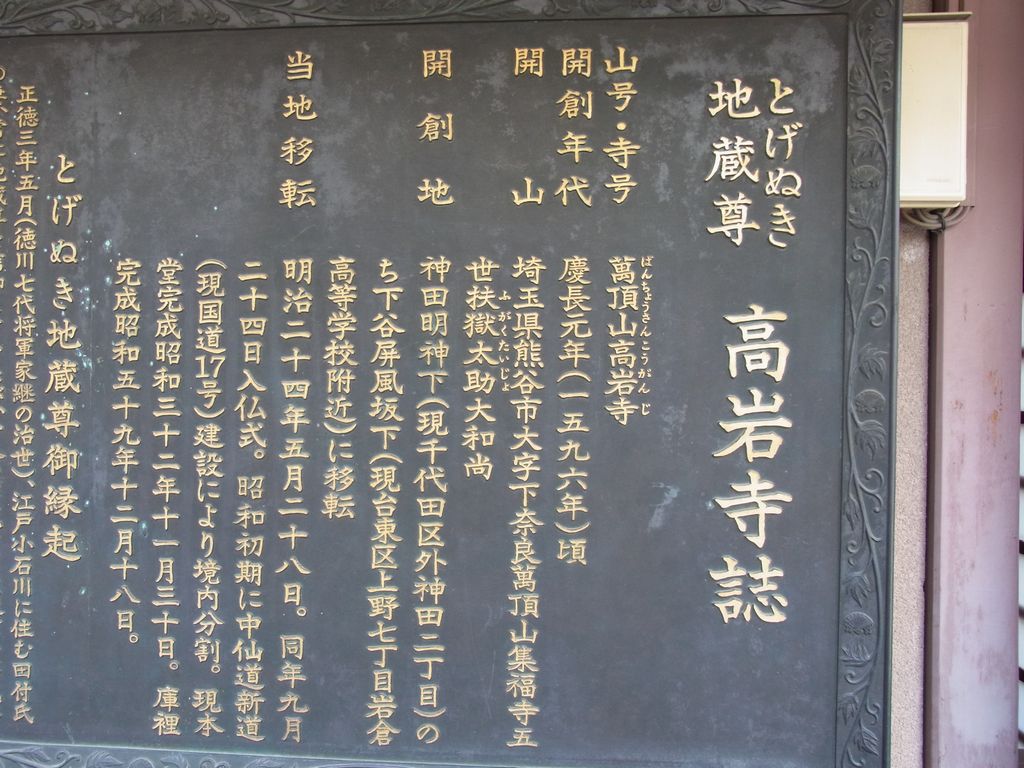 とげぬき
地蔵尊 高岩寺誌
山号・寺号 萬頂山高岩寺
ばんちょうざんこうがんじ
開創年代 慶長元年(一五九六年)頃
開山 埼玉県熊谷市大字下奈良萬頂山集福寺五
世扶嶽太助大和尚
ふがくたいじょ
開創地 神田明神下(現千代田区外神田二丁目)の
ち下谷屏風坂下(現台東区上野七丁目岩倉
高等学校附近)に移転
当地移転 明治二十四年五月二十八日。同年九月
二十四日入仏式。昭和初期に中仙道新道
(現国道17号)建設により境内分割。現本
堂完成昭和三十二年十一月三十日。庫裡
完成昭和五十九年十二月十八日。
とげぬき地蔵尊御縁起
正徳三年五月(徳川七代将軍家継の治世)、江戸小石川に住む田付氏